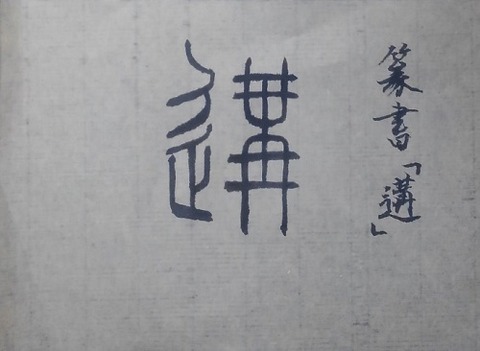 篆書「遘」
遘